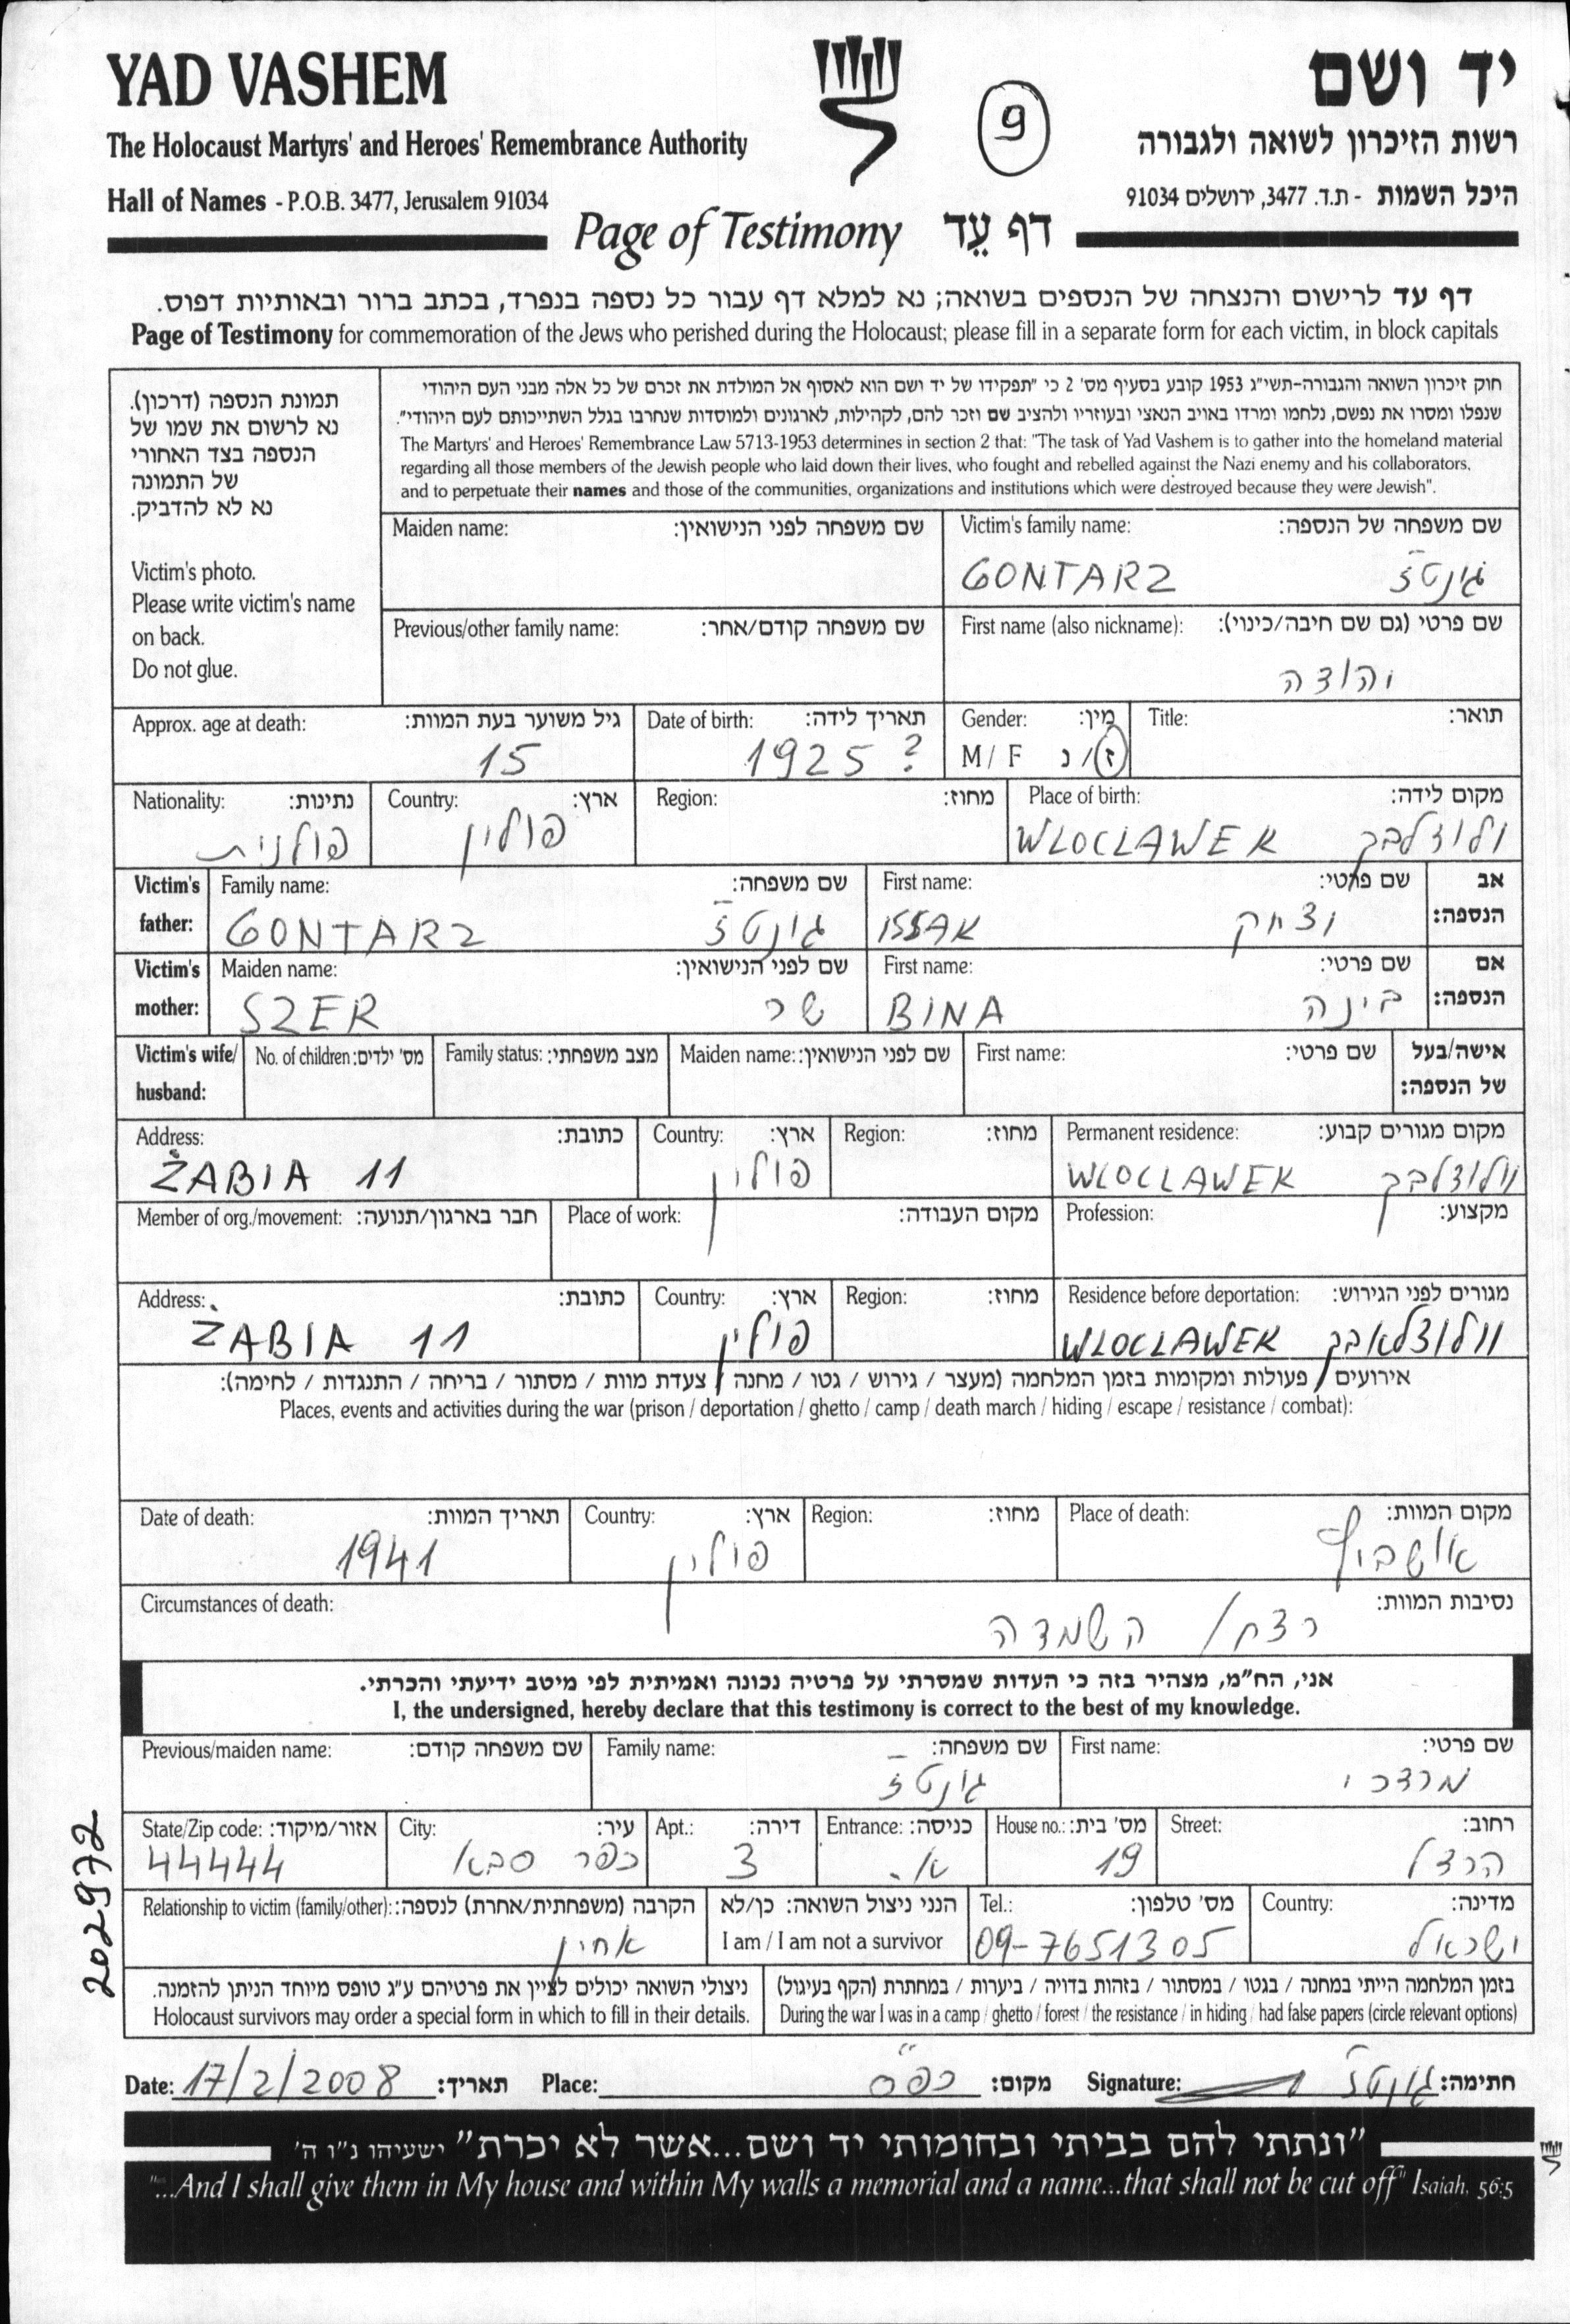 YAD VASHEM
יד ושם
9
The Holocaust Martyrs' and Heroes' Remembrance Authority
רשות הזיכרון לשואה ולגבורה
Hall of Names - P.O.B. 3477, Jerusalem 91034
היכל השמות - ת.ד. 3477, ירושלים 91034
Page of Testimony דף עֵד
דף עד לרישום והנצחה של הנספים בשואה; נא למלא דף עבור כל נספה בנפרד, בכתב ברור ובאותיות דפוס.
Page of Testimony for commemoration of the Jews who perished during the Holocaust; please fill in a separate form for each victim, in block capitals
תמונת הנספה (דרכון).
נא לרשום את שמו של
הנספה בצד האחורי
של התמונה
נא לא להדביק.
Victim's photo.
Please write victim's name
on back.
Do not glue.
חוק זיכרון השואה והגבורה-תשי"ג 1953 קובע בסעיף מס' 2 כי "תפקידו של יד ושם הוא לאסוף אל המולדת את זכרם של כל אלה מבני העם היהודי
שנפלו ומסרו את נפשם, נלחמו ומרדו באויב הנאצי ובעוזריו ולהציב שם וזכר להם, לקהילות, לארגונים ולמוסדות שנחרבו בגלל השתייכותם לעם היהודי".
The Martyrs' and Heroes' Remembrance Law 5713-1953 determines in section 2 that: "The task of Yad Vashem is to gather into the homeland material
regarding all those members of the Jewish people who laid down their lives, who fought and rebelled against the Nazi enemy and his collaborators,
and to perpetuate their names and those of the communities, organizations and institutions which were destroyed because they were Jewish".
Maiden name: שם משפחה לפני הנישואין:
Victim's family name: שם משפחה של הנספה:
GONTARZ גונטז
Previous/other family name: שם משפחה קודם/אחר:
First name (also nickname): שם פרטי (גם שם חיבה/כינוי):
יהודה
Approx. age at death: גיל משוער בעת המוות:
15
Date of birth: תאריך לידה:
1925 ?
Gender: מין:
M / F ז/נ
Title: תואר:
Nationality: נתינות:
פולנית
Country: ארץ:
פולין
Region: מחוז:
Place of birth: מקום לידה:
WLOCLAWEK ולוצלבק
Victim's father:
Family name: שם משפחה:
GONTARZ גונטז
First name: שם פרטי:
ISSAK יצחק
אב הנספה:
Victim's mother:
Maiden name: שם לפני הנישואין:
SZER שר
First name: שם פרטי:
BINA בינה
אם הנספה:
Victim's wife/ husband:
No. of children: מס' ילדים:
Family status: מצב משפחתי:
Maiden name: שם לפני הנישואין:
First name: שם פרטי:
אישה/בעל של הנספה:
Address: כתובת:
ŻABIA 11
Country: ארץ:
פולין
Region: מחוז:
Permanent residence: מקום מגורים קבוע:
WLOCLAWEK וולוצלבק
Member of org./movement: חבר בארגון/תנועה:
Place of work: מקום העבודה:
Profession: מקצוע:
Address: כתובת:
ŻABIA 11
Country: ארץ:
פולין
Region: מחוז:
Residence before deportation: מגורים לפני הגירוש:
WLOCLAWEK וולוצלאבק
אירועים / פעולות ומקומות בזמן המלחמה (מעצר / גירוש / גטו / מחנה / צעדת מוות / מסתור / בריחה / התנגדות / לחימה):
Places, events and activities during the war (prison / deportation / ghetto / camp / death march / hiding / escape / resistance / combat):
Date of death: תאריך המוות:
1941
Country: ארץ:
פולין
Region: מחוז:
Place of death: מקום המוות:
אושביץ
Circumstances of death: נסיבות המוות:
רצח / השמדה
אני, הח"מ, מצהיר בזה כי העדות שמסרתי על פרטיה נכונה ואמיתית לפי מיטב ידיעתי והכרתי.
I, the undersigned, hereby declare that this testimony is correct to the best of my knowledge.
Previous/maiden name: שם משפחה קודם:
Family name: שם משפחה:
גונטז
First name: שם פרטי:
מרדכי
State/Zip code: אזור/מיקוד:
44444
City: עיר:
כפר סבא
Apt.: דירה:
3
Entrance: כניסה:
א.
House no.: מס' בית:
19
Street: רחוב:
הרצל
Relationship to victim (family/other): הקרבה (משפחתית/אחרת) לנספה:
אחיין
הנני ניצול השואה: כן/לא
I am / I am not a survivor
Tel.: מס' טלפון:
09-7651305
Country: מדינה:
ישראל
ניצולי השואה יכולים לציין את פרטיהם ע"ג טופס מיוחד הניתן להזמנה.
Holocaust survivors may order a special form in which to fill in their details.
בזמן המלחמה הייתי במחנה / בגטו / במסתור / בזהות בדויה / ביערות / במחתרת (הקף בעיגול)
During the war I was in a camp / ghetto / forest / the resistance / in hiding / had false papers (circle relevant options)
Date: 17/2/2008 תאריך: Place: כפ"ס מקום: Signature: גונטז חתימה:
202972
"ונתתי להם בביתי ובחומותי יד ושם...אשר לא יכרת" ישעיהו נ"ו ה'
"...And I shall give them in My house and within My walls a memorial and a name...that shall not be cut off" Isaiah, 56:5